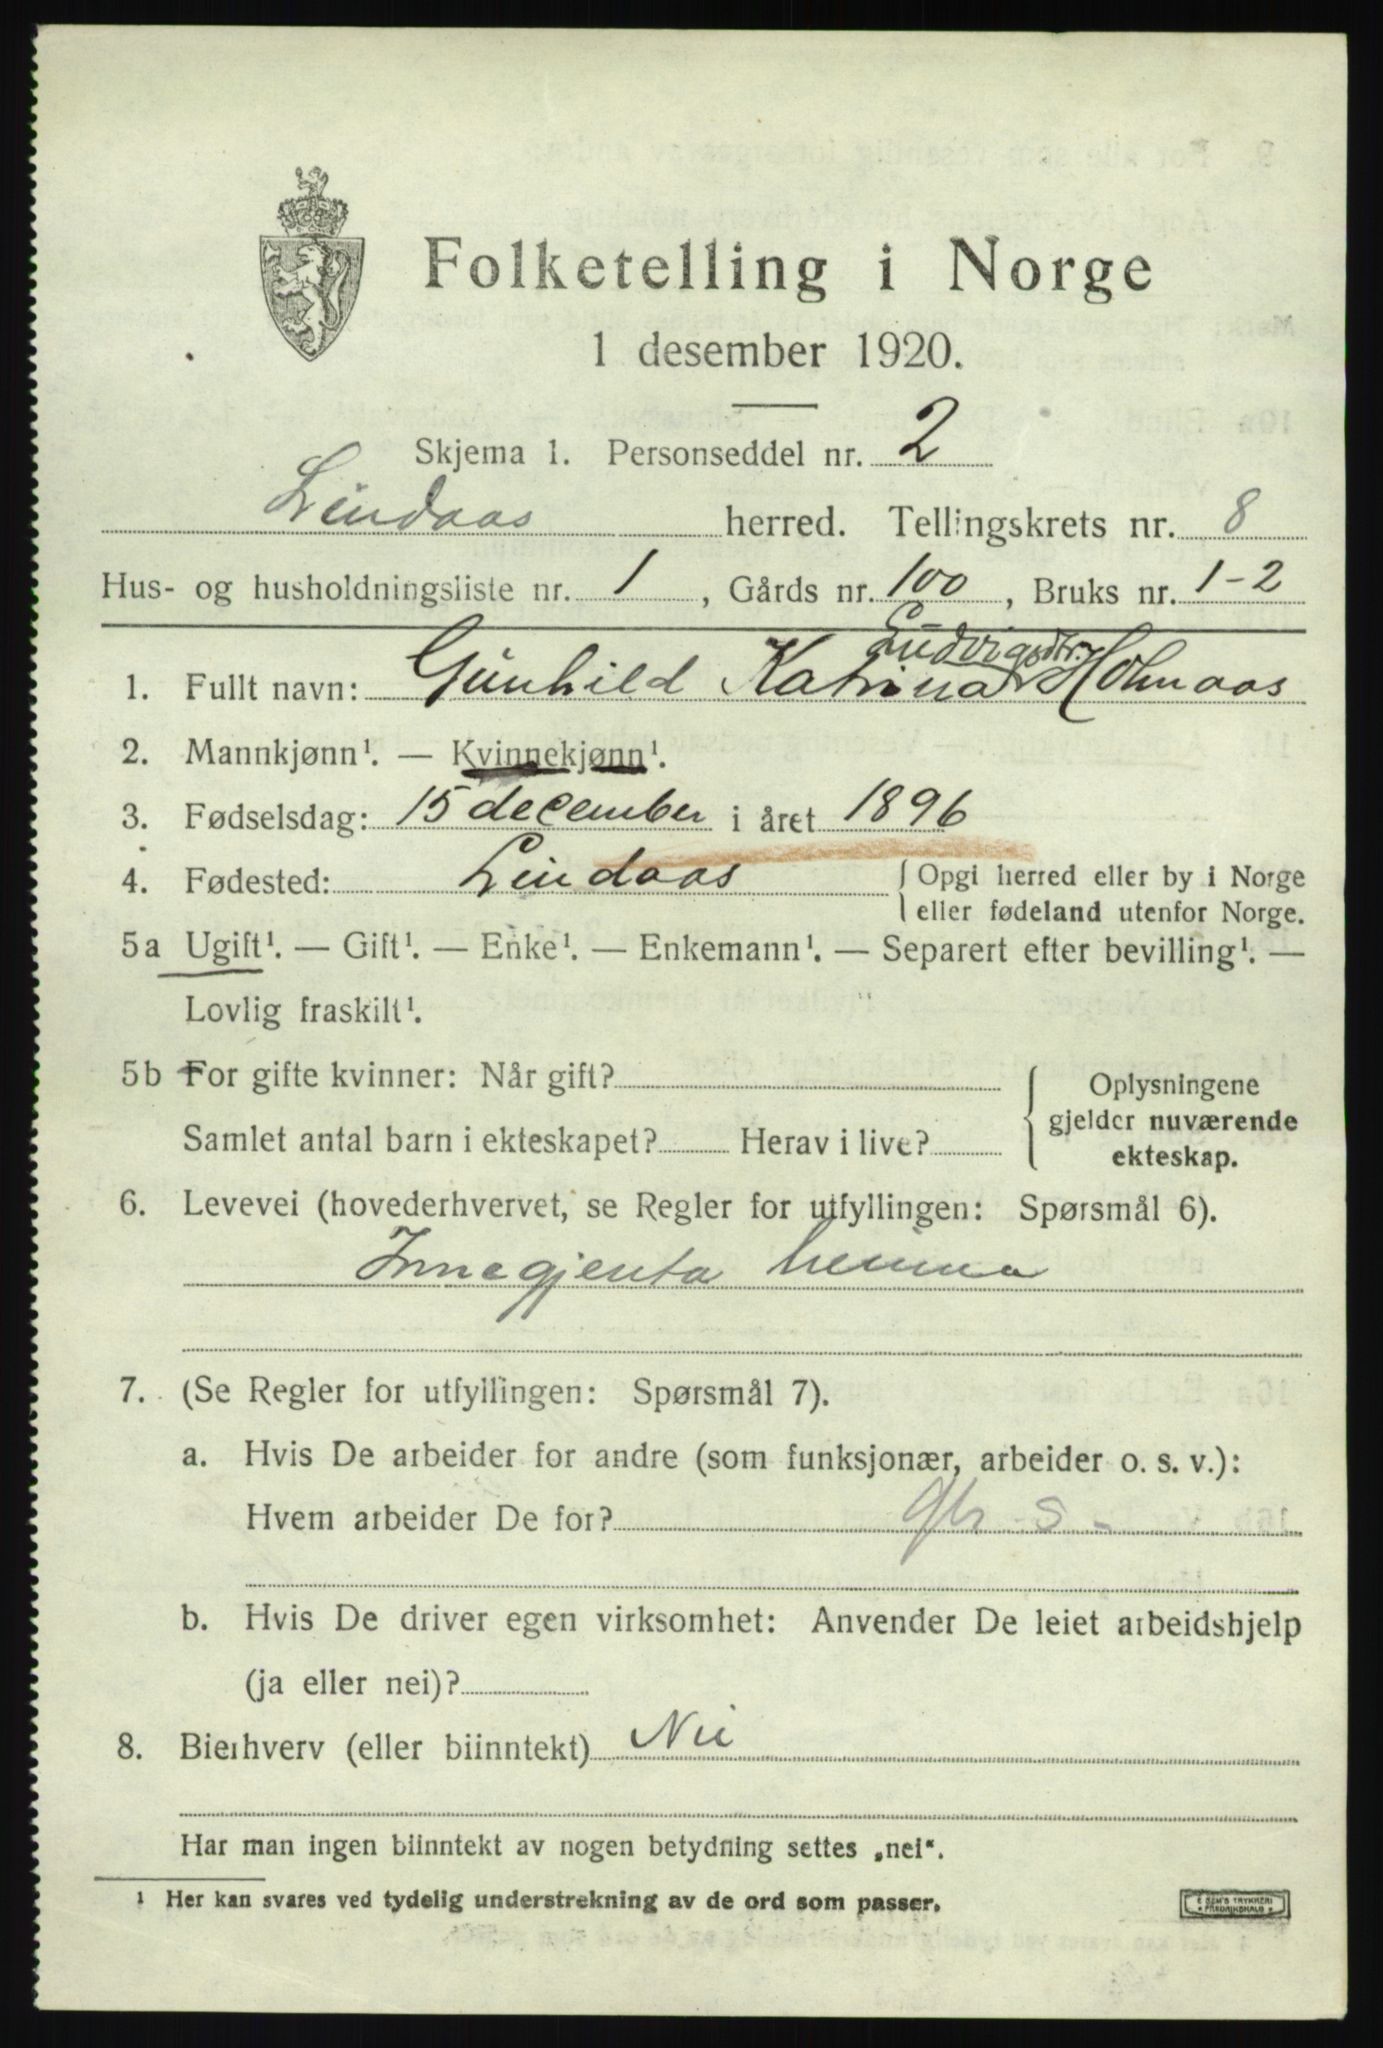 Folketelling i Norge
1 desember 1920.
Skjema 1. Personseddel nr. 2
Lindaas herred. Tellingskrets nr. 8
Hus- og husholdningsliste nr. 1, Gårds nr. 100, Bruks nr. 1-2
Ludvigsdtr.
1. Fullt navn: Gunhild Katrina Holmaas
2. Mannkjønn¹. — Kvinnekjønn¹.
3. Fødselsdag: 15 december i året 1896
4. Fødested: Lindaas { Opgi herred eller by i Norge
eller fødeland utenfor Norge.
5a Ugift¹. — Gift¹. — Enke¹. — Enkemann¹. — Separert efter bevilling¹. —
Lovlig fraskilt¹.
5b For gifte kvinner: Når gift?
Samlet antal barn i ekteskapet? Herav i live?
Oplysningene
gjelder nuværende
ekteskap.
6. Levevei (hovederhvervet, se Regler for utfyllingen: Spørsmål 6).
Innegjenta heima
7. (Se Regler for utfyllingen: Spørsmål 7).
a. Hvis De arbeider for andre (som funksjonær, arbeider o. s. v.):
Hvem arbeider De for?
b. Hvis De driver egen virksomhet: Anvender De leiet arbeidshjelp
(ja eller nei)?
8. Bierhverv (eller biinntekt) Nei
Har man ingen biinntekt av nogen betydning settes „nei“.
¹ Her kan svares ved tydelig understrekning av de ord som passer.